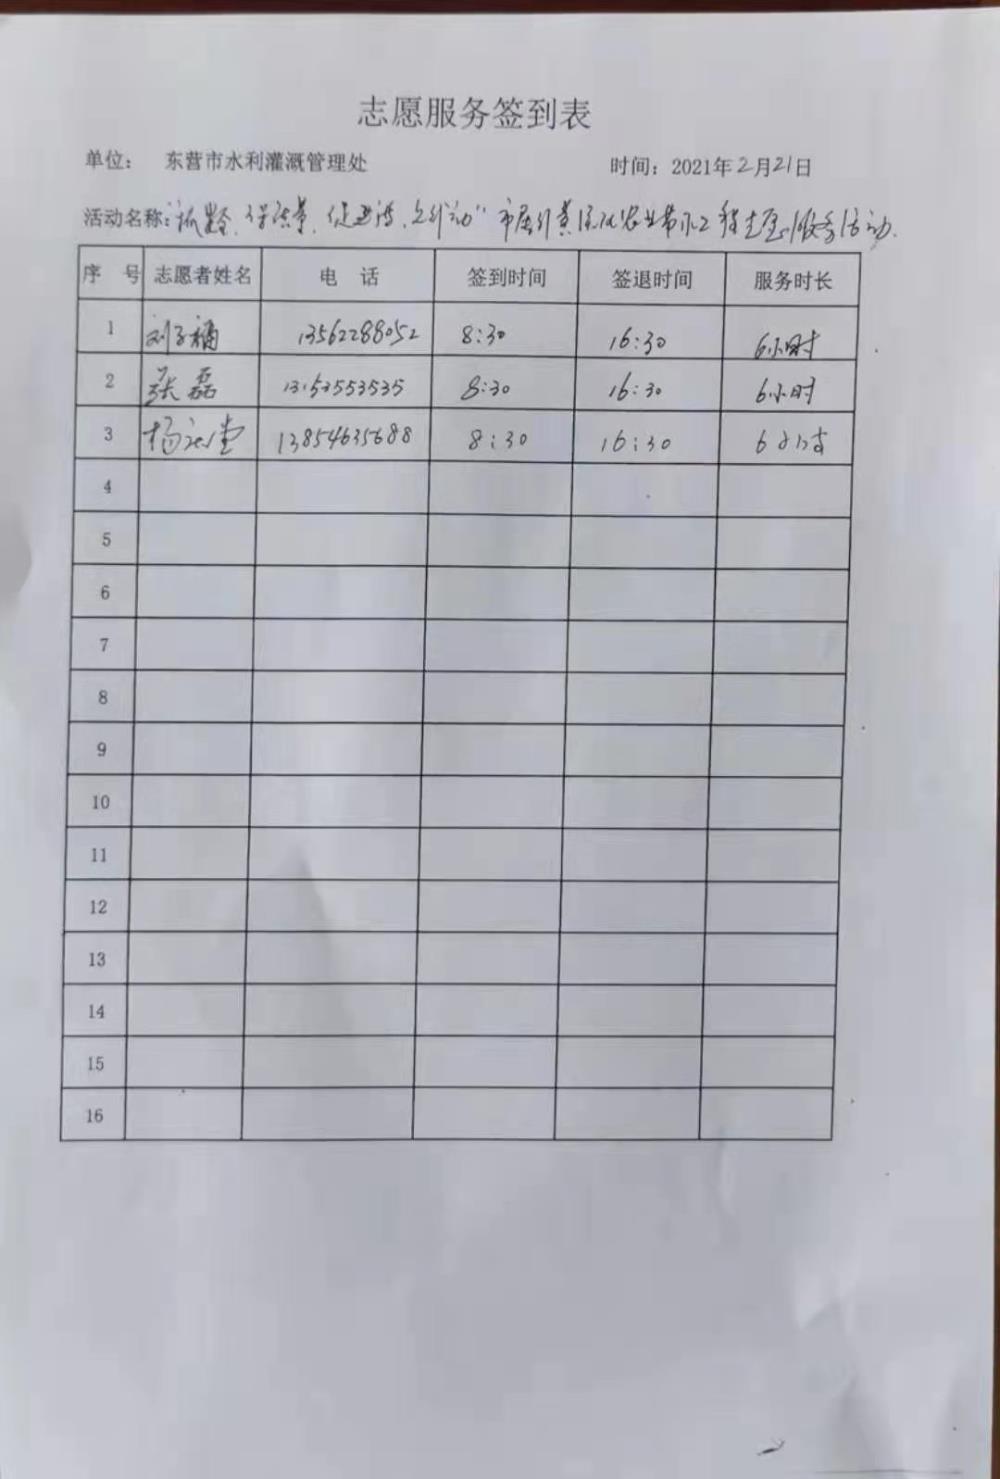 志愿服务签到表
单位： 东营市水利灌溉管理处 时间：2021年2月21日
活动名称："抓 保供 促 行动" 市属引黄 农业节水工程志愿服务活动.
序 号 志愿者姓名 电 话 签到时间 签退时间 服务时长
1 刘 13562288052 8:30 16:30 6小时
2 张磊 13153553535 8:30 16:30 6小时
3 杨 13854635688 8:30 16:30 6小时
4
5
6
7
8
9
10
11
12
13
14
15
16